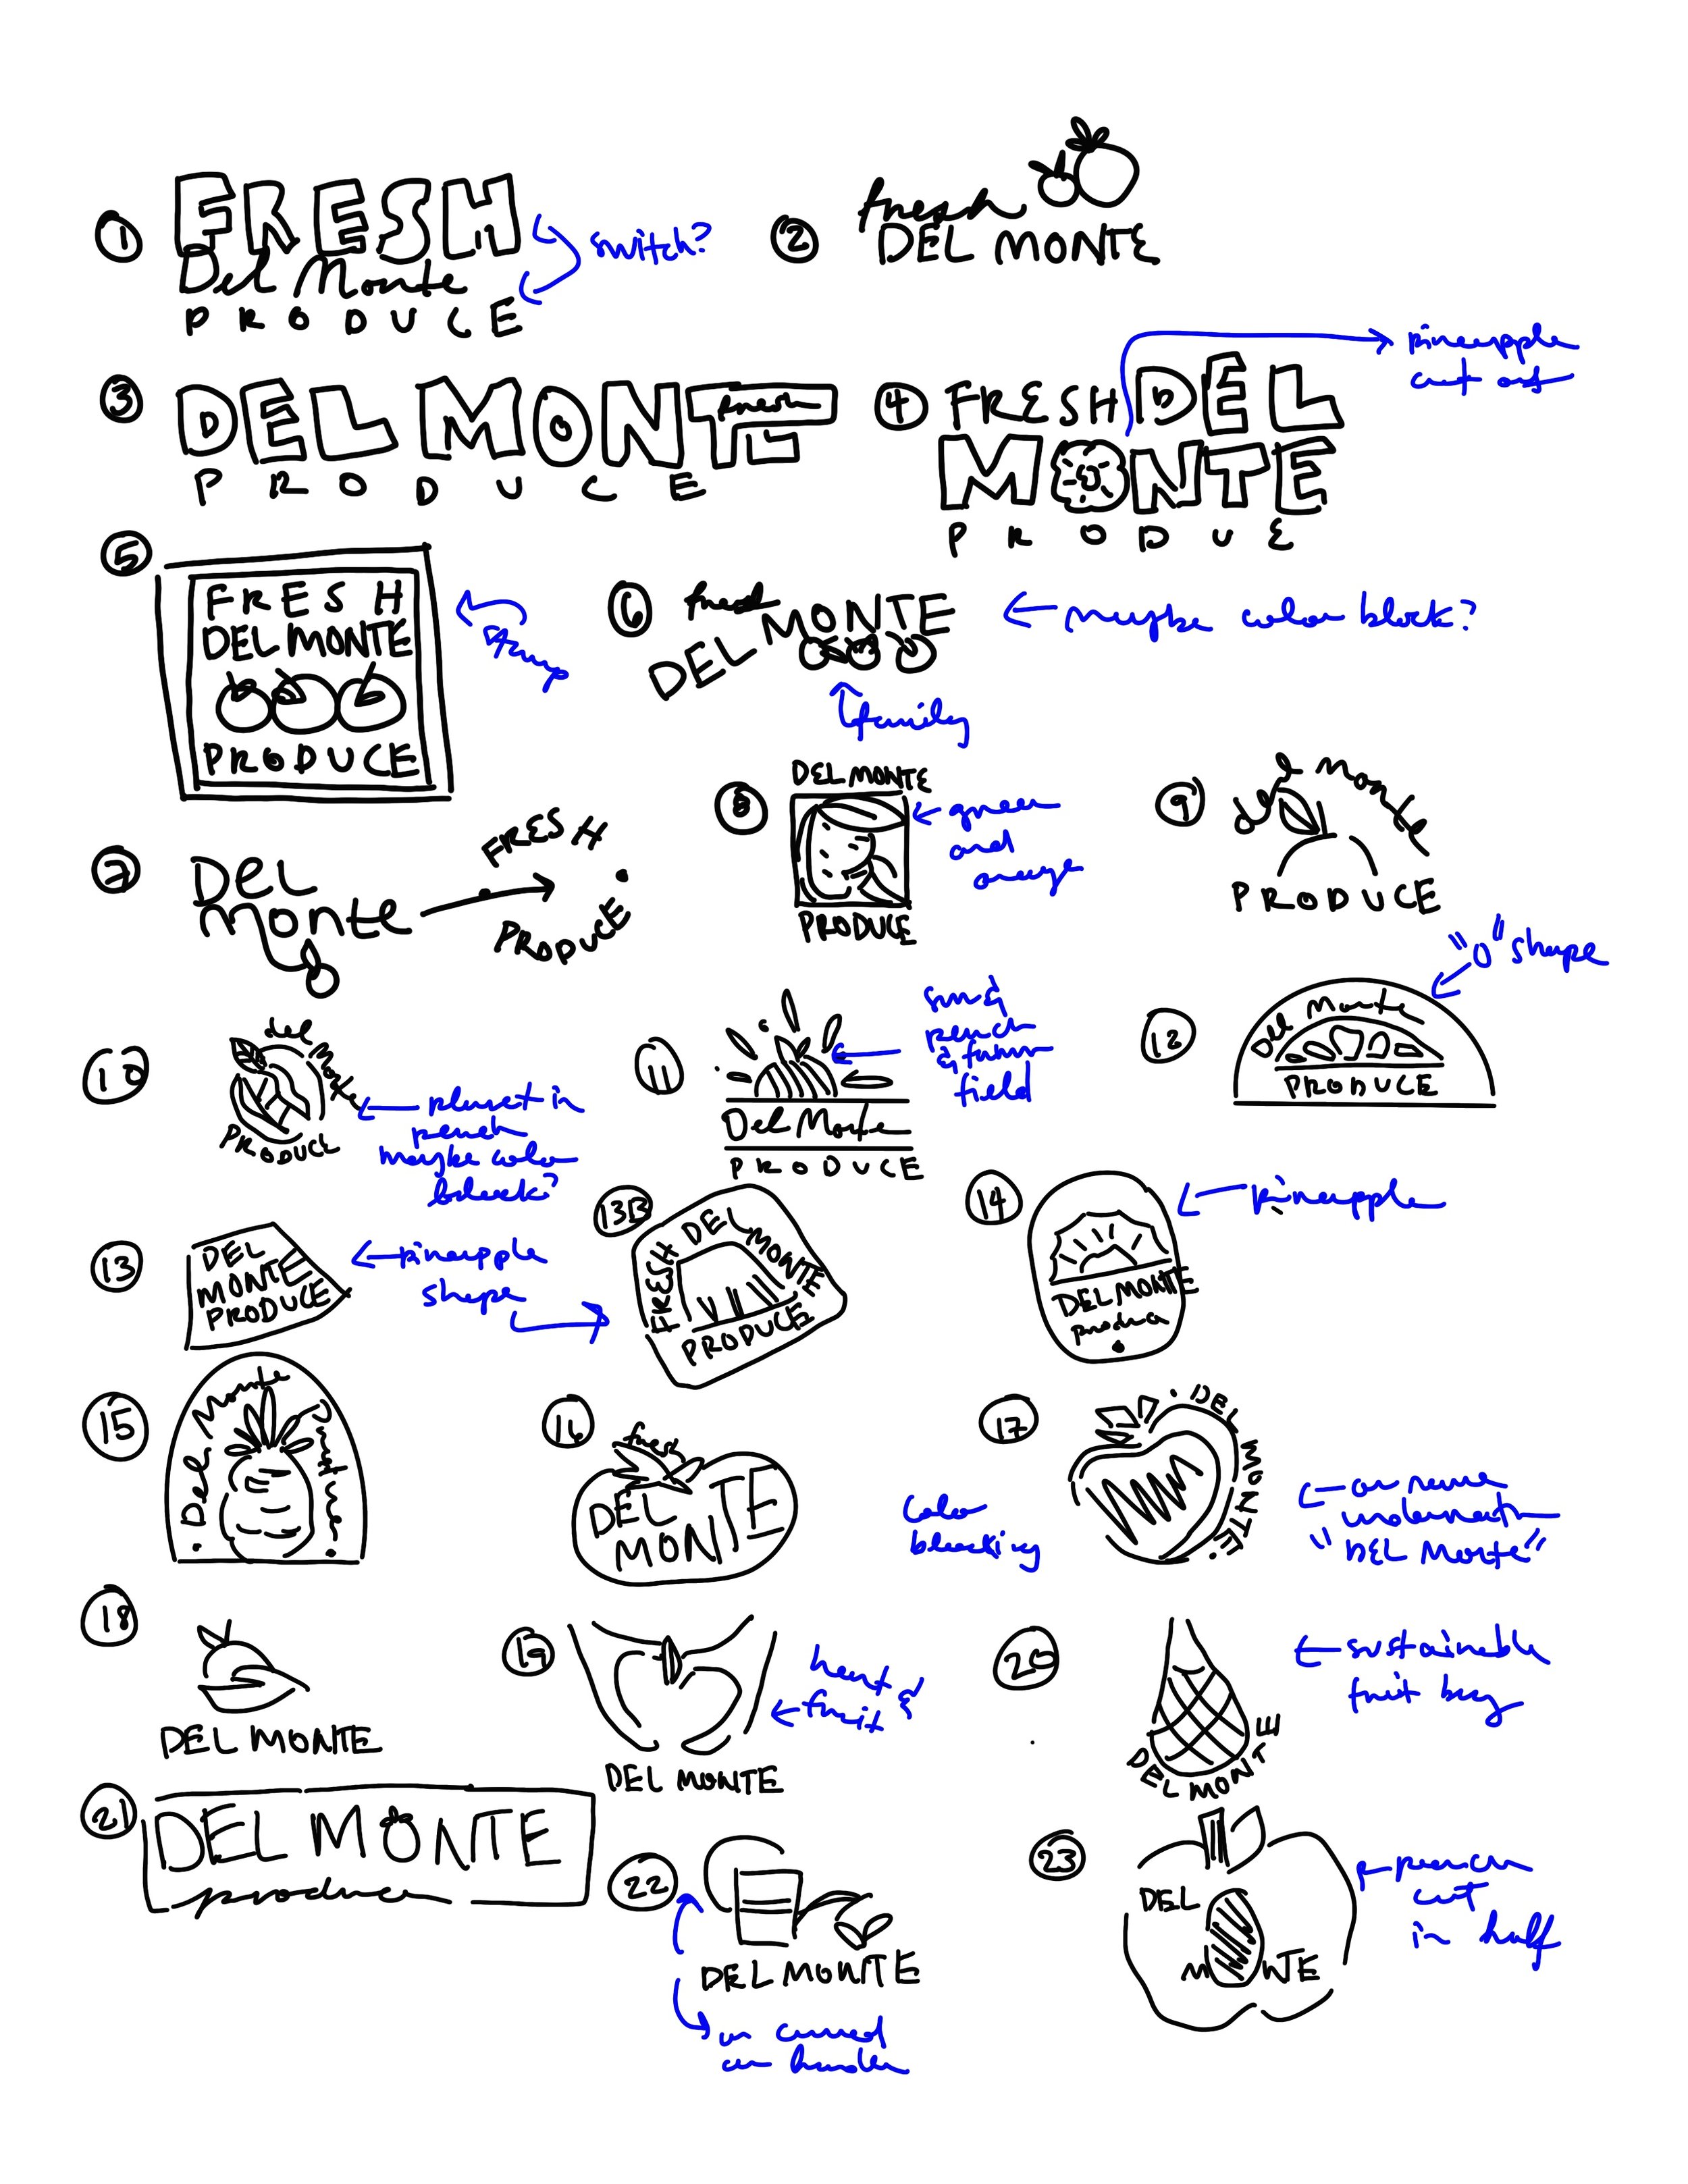 1
FRESH
Del Monte
PRODUCE
switch?
2
fresh
DEL MONTE
3
DEL MONTE
fresh
PRODUCE
4
FRESH DEL
MONTE
PRODUE
pineapple
cut out
5
FRESH
DEL MONTE
PRODUCE
6
fresh
DEL MONTE
← maybe color block?
family
7
Del
Monte
FRESH
PRODUCE
8
DEL MONTE
PRODUCE
← green
and
orange
9
del Monte
PRODUCE
10
del Monte
PRODUCE
← planet in
peach
maybe color
block?
11
Del Monte
PRODUCE
sun &
peach
& farm
field
12
Del Monte
PRODUCE
"O" shape
13
DEL
MONTE
PRODUCE
← pineapple
shape
13B
FRESH DEL MONTE
PRODUCE
14
DEL MONTE
← pineapple
15
Del Monte
16
fresh
DEL
MONTE
17
DEL MONTE
Color
blocking
← or name
underneath
"DEL Monte"
18
DEL MONTE
19
DEL MONTE
fruit
20
DEL MONTE
← sustainable
fruit bag
21
DEL MONTE
produce
22
DEL MONTE
23
DEL
MONTE
cut
in half